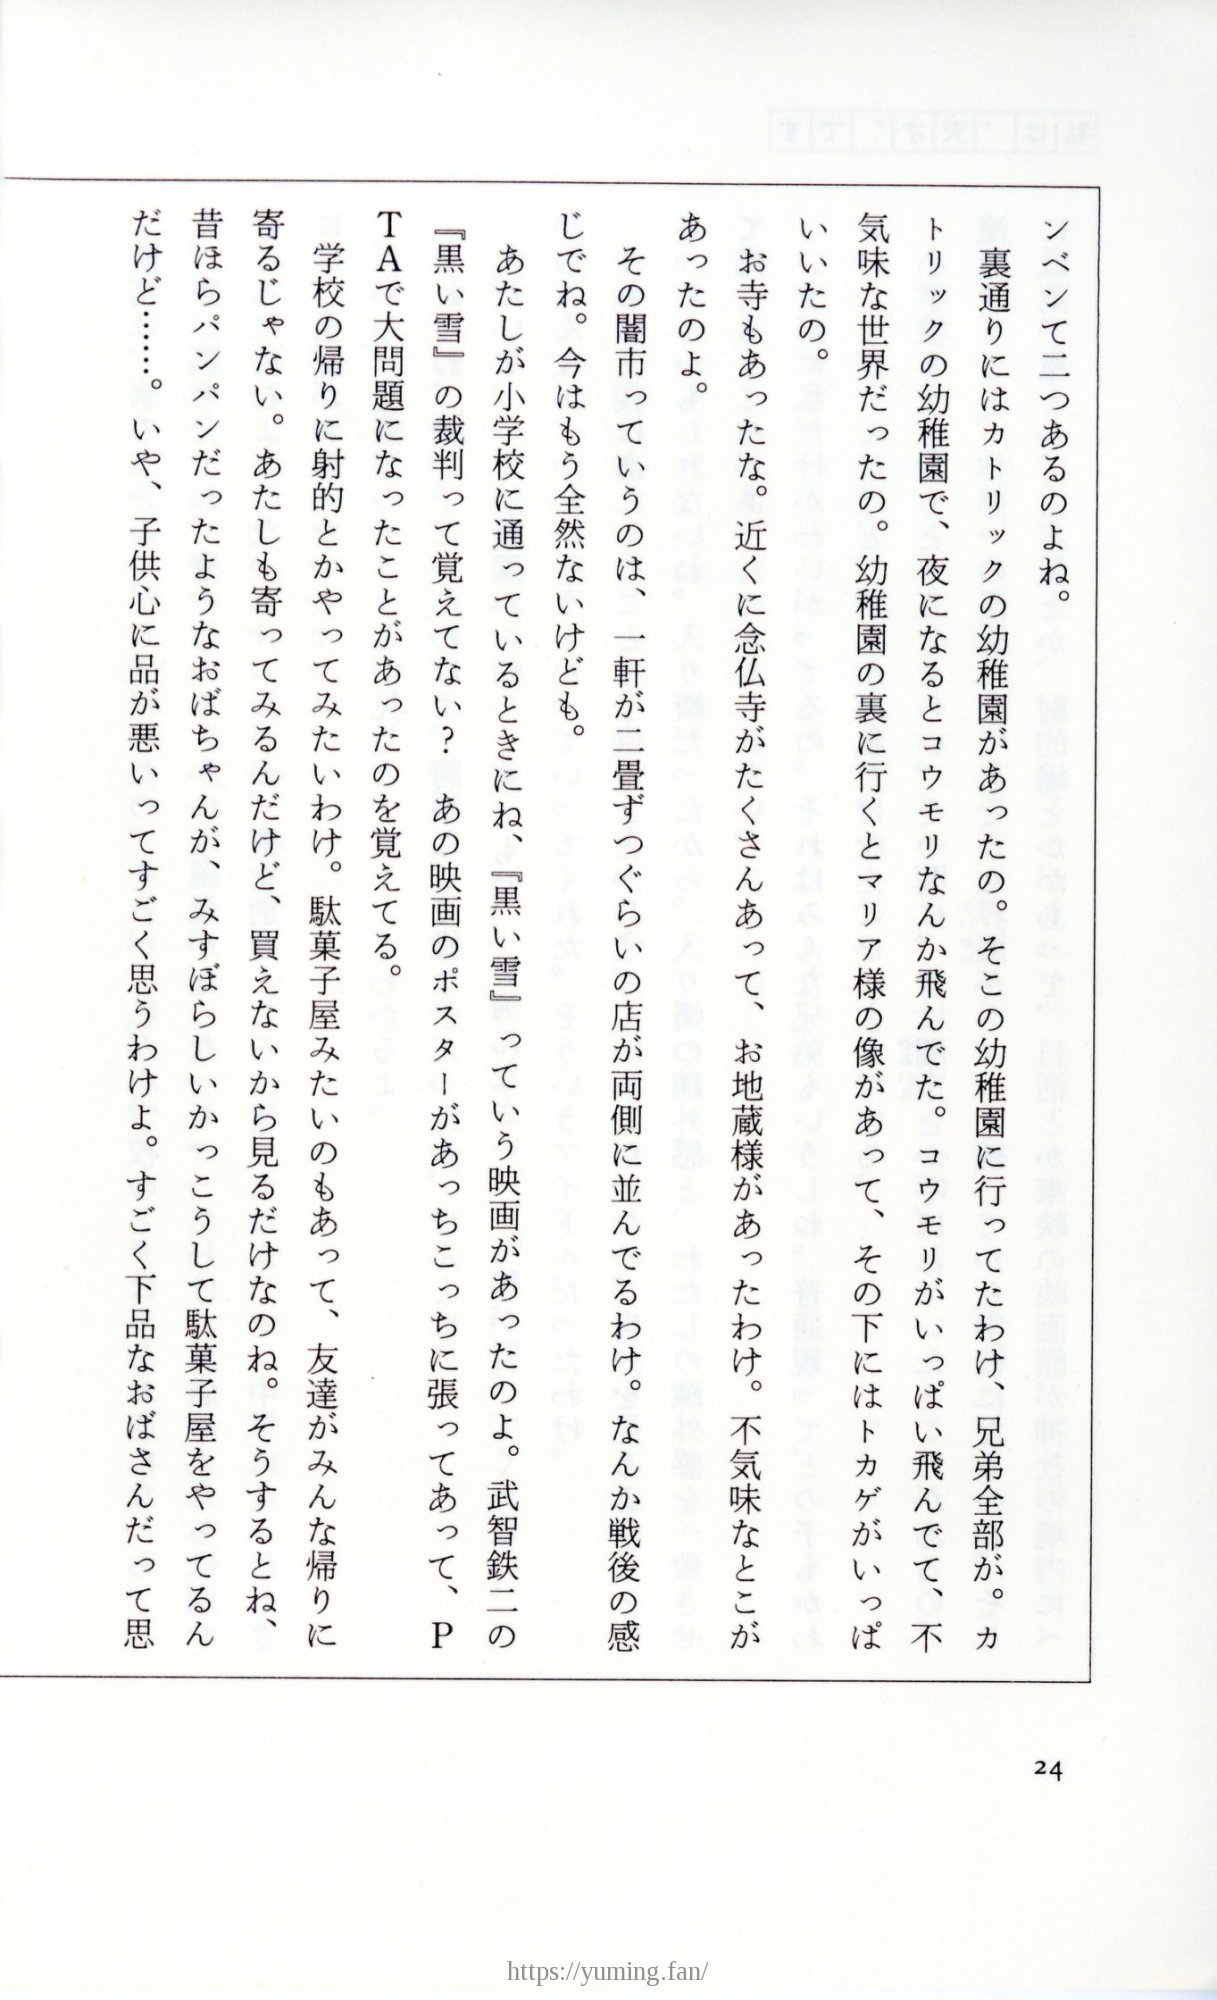 ンベンて二つあるのよね。
裏通りにはカトリックの幼稚園があったの。そこの幼稚園に行ってたわけ、兄弟全部が。カ
トリックの幼稚園で、夜になるとコウモリなんか飛んでた。コウモリがいっぱい飛んでて、不
気味な世界だったの。幼稚園の裏に行くとマリア様の像があって、その下にはトカゲがいっぱ
いいたの。
お寺もあったな。近くに念仏寺がたくさんあって、お地蔵様があったわけ。不気味なとこが
あったのよ。
その闇市っていうのは、一軒が二畳ずつぐらいの店が両側に並んでるわけ。なんか戦後の感
じでね。今はもう全然ないけども。
あたしが小学校に通っているときにね、『黒い雪』っていう映画があったのよ。武智鉄二の
『黒い雪』の裁判って覚えてない？あの映画のポスターがあっちこっちに張ってあって、P
TAで大問題になったことがあったのを覚えてる。
学校の帰りに射的とかやってみたいわけ。駄菓子屋みたいのもあって、友達がみんな帰りに
寄るじゃない。あたしも寄ってみるんだけど、買えないから見るだけなのね。そうするとね、
昔ほらパンパンだったようなおばちゃんが、みすぼらしいかっこうして駄菓子屋をやってるん
だけど……。いや、子供心に品が悪いってすごく思うわけよ。すごく下品なおばさんだって思
24
https://yuming.fan/